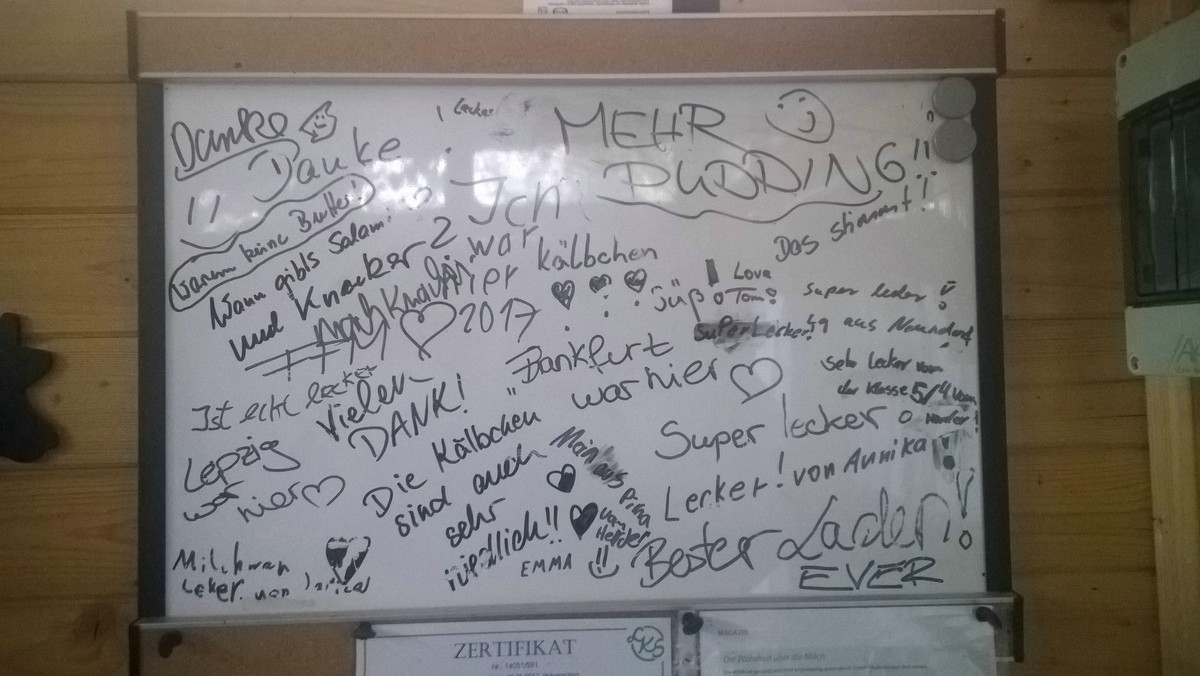 Danke
Danke
!!
Lecker
MEHR
PUDDING!!
Das stimmt!!
Warum keine Butter!
Wann gibts Salami
und Knacker?
Ich
war
hier
2017
kälbchen
süß!
Love
Tom
Super lecker!
Super Lecker!
aus
Sehr Lecker vom
der Klasse 5/4 vom
Ist echt lecker
Vielen
DANK!
Leipzig
war
hier
Frankfurt
war hier
Die Kälbchen
sind auch
sehr
niedlich!!
Super lecker
Lecker! von Annika!
Main aus
Pirna
EMMA
Bester Laden!
EVER
Milch war
Leker von
ZERTIFIKAT
CKS
MAGAZIN